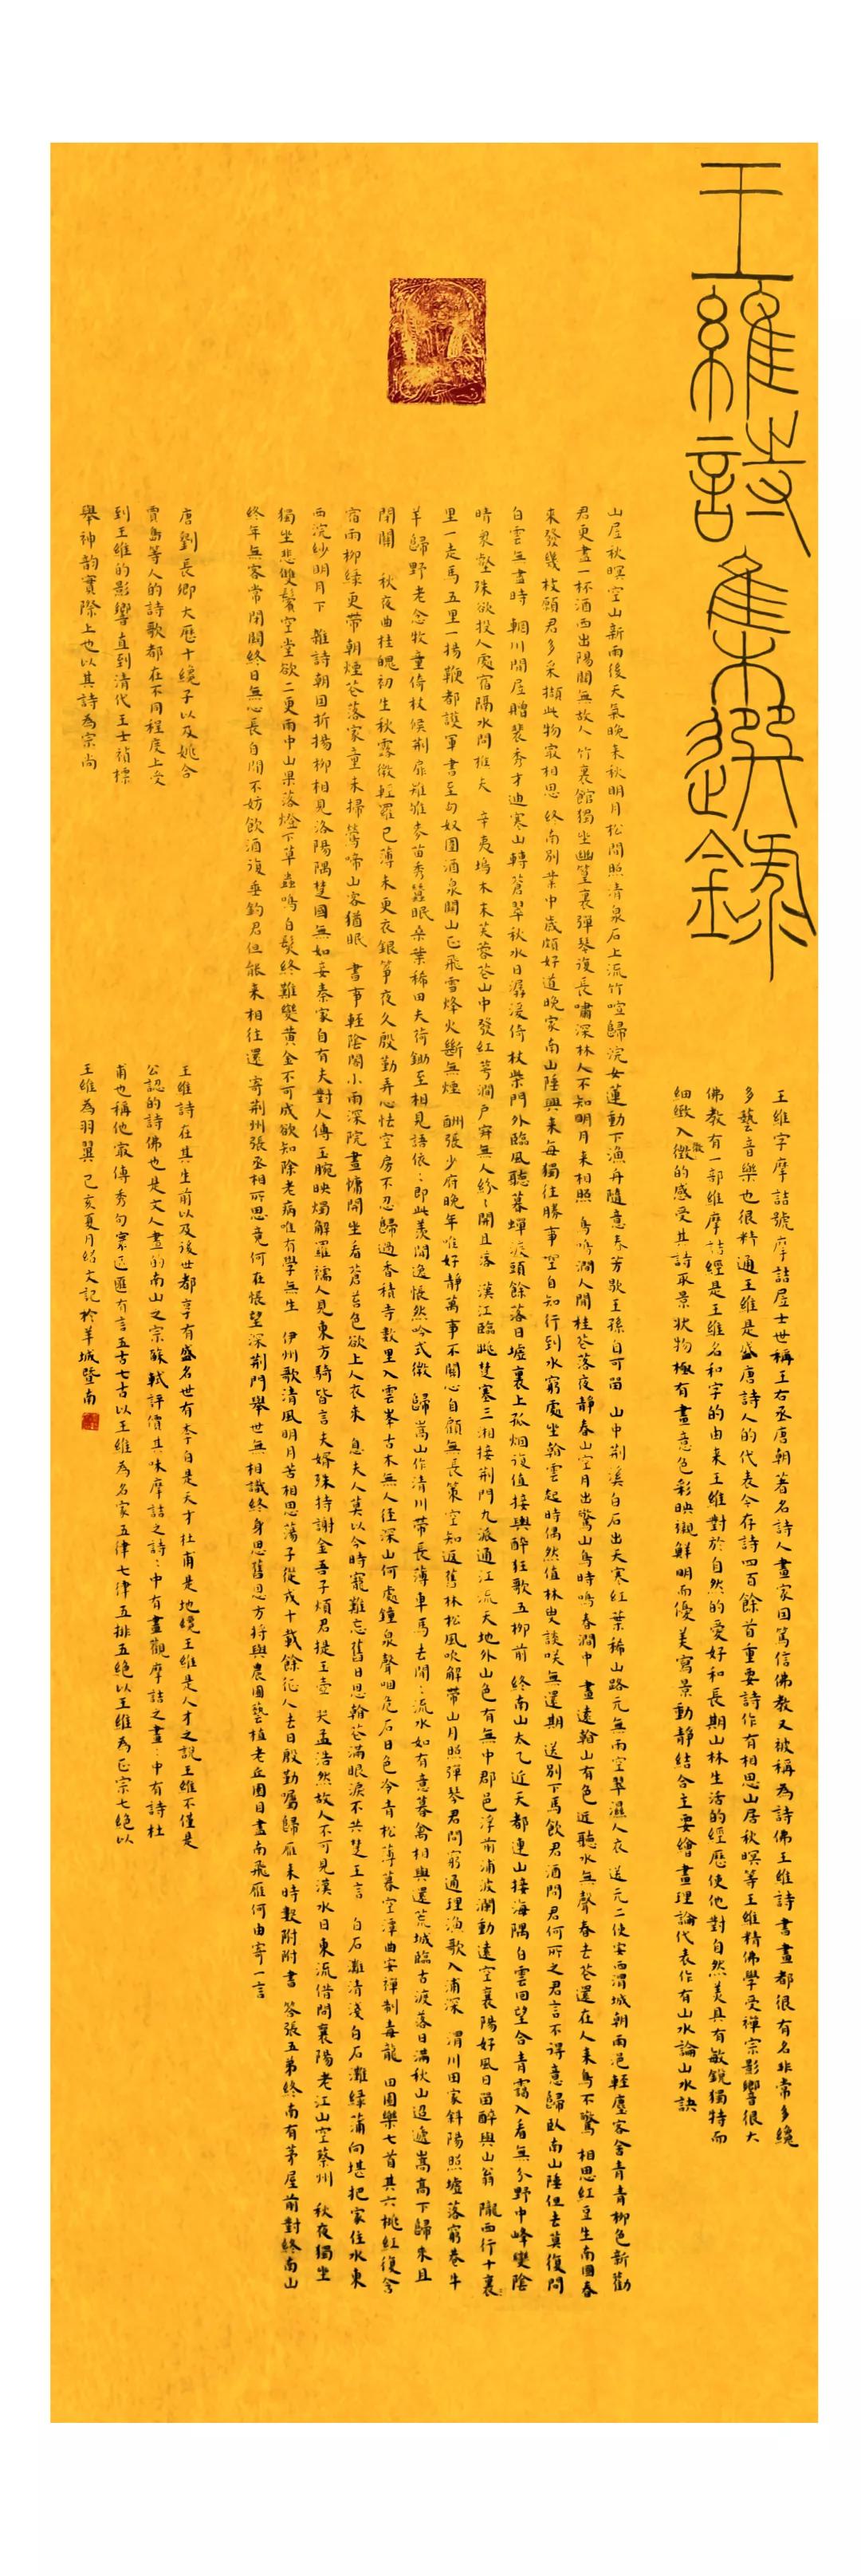 王維詩集選錄
王維字摩詰號摩詰居士世稱王右丞唐朝著名詩人畫家因篤信佛教又被稱為詩佛王維詩書畫都很有名非常多纔
多藝音樂也很精通王維是盛唐詩人的代表今存詩四百餘首重要詩作有相思山居秋暝等王維精佛學受禪宗影響很大
佛教有一部維摩詰經是王維名和字的由来王維對於自然的愛好和長期山林生活的經歷使他對自然美具有敏銳獨特而
細緻入微的感受其詩取景狀物極有畫意色彩映襯鮮明而優美寫景動靜結合主要繪畫理論代表作有山水論山水訣
山居秋暝空山新雨後天氣晚来秋明月松間照清泉石上流竹喧歸浣女蓮動下漁舟隨意春芳歇王孫自可留 山中荆溪白石出天寒紅葉稀山路元無雨空翠濕人衣 送元二使安西渭城朝雨浥輕塵客舍青青柳色新勸
君更盡一杯酒西出陽關無故人 竹裏館獨坐幽篁裏彈琴復長嘯深林人不知明月来相照 鳥鳴澗人閒桂花落夜靜春山空月出驚山鳥時鳴春澗中 畫遠看山有色近聽水無聲春去花還在人来鳥不驚 相思紅豆生南國春
来發幾枝願君多采擷此物最相思 終南別業中歲頗好道晚家南山陲興来每獨往勝事空自知行到水窮處坐看雲起時偶然值林叟談笑無還期 送別下馬飲君酒問君何所之君言不得意歸臥南山陲但去莫復問
白雲無盡時 輞川閒居贈裴秀才迪寒山轉蒼翠秋水日潺湲倚杖柴門外臨風聽暮蟬渡頭餘落日墟裏上孤烟復值接輿醉狂歌五柳前 終南山太乙近天都連山接海隅白雲回望合青靄入看無分野中峰變陰
晴衆壑殊欲投人處宿隔水問樵夫 辛夷塢木末芙蓉花山中發紅萼澗戶寂無人紛紛開且落 漢江臨眺楚塞三湘接荆門九派通江流天地外山色有無中郡邑浮前浦波瀾動遠空襄陽好風日留醉與山翁 隴西行十裏
里一走馬五里一揚鞭都護軍書至匈奴圍酒泉關山正飛雪烽火斷無煙 酬張少府晚年唯好靜萬事不關心自顧無長策空知返舊林松風吹解帶山月照彈琴君問窮通理漁歌入浦深 渭川田家斜陽照墟落窮巷牛
羊歸野老念牧童倚杖候荆扉雉雊麥苗秀蠶眠桑葉稀田夫荷鋤至相見語依依即此羨閒逸悵然吟式微 歸嵩山作清川帶長薄車馬去閒閒流水如有意暮禽相與還荒城臨古渡落日滿秋山迢遞嵩高下歸来且
閉關 秋夜曲桂魄初生秋露微輕羅已薄未更衣銀箏夜久殷勤弄心怯空房不忍歸 過香積寺數里入雲峯古木無人徑深山何處鐘泉聲咽危石日色冷青松薄暮空潭曲安禪制毒龍 田園樂七首其六桃紅復含
宿雨柳綠更帶朝煙花落家童未掃鶯啼山客猶眠 書事輕陰閣小雨深院晝慵開坐看蒼苔色欲上人衣来 息夫人莫以今時寵難忘舊日恩看花滿眼淚不共楚王言 白石灘清淺白石灘綠蒲向堪把家住水東
西浣紗明月下 雜詩朝因折揚柳相見洛陽隅楚國無如妾秦家自有夫對人傳玉腕映燭解羅襦人見東方騎皆言夫婿殊持謝金吾子煩君提玉壺 哭孟浩然故人不可見漢水日東流借問襄陽老江山空蔡州 秋夜獨坐
獨坐悲雙鬢空堂欲二更雨中山果落燈下草蟲鳴白髮終難變黃金不可成欲知除老病唯有學無生 伊州歌清風明月苦相思蕩子從戎十載餘征人去日殷勤囑歸雁来時數附附書 答張五弟終南有茅屋前對終南山
終年無客常閉關終日無心長自閒不妨飲酒復垂釣君但能来相往還 寄荆州張丞相所思竟何在悵望深荆門舉世無相識終身思舊恩方將與農圃藝植老丘園目盡南飛雁何由寄一言
唐劉長卿大歷十纔子以及姚合
賈島等人的詩歌都在不同程度上受
到王維的影響直到清代王士禎標
舉神韵實際上也以其詩為宗尚
王維詩在其生前以及後世都享有盛名世有李白是天才杜甫是地纔王維是人才之說王維不僅是
公認的詩佛也是文人畫的南山之宗蘇軾評價其味摩詰之詩詩中有畫觀摩詰之畫畫中有詩杜
甫也稱他最傳秀句寰區匯有言五古七古以王維為名家五律七律五排五絕以王維為正宗七絕以
王維為羽翼 己亥夏月紹文記於羊城暨南